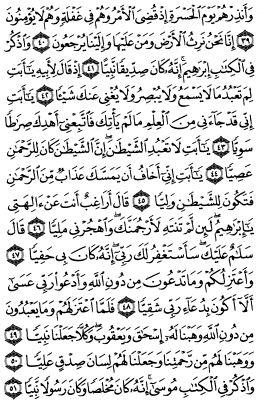 وَأَنذِرْهُمْ يَوْمَ الْحَسْرَةِ إِذْ قُضِيَ الْأَمْرُ وَهُمْ فِي غَفْلَةٍ وَهُمْ لَا يُؤْمِنُونَ
٣٩ إِنَّا نَحْنُ نَرِثُ الْأَرْضَ وَمَنْ عَلَيْهَا وَإِلَيْنَا يُرْجَعُونَ ٤٠ وَاذْكُرْ
فِي الْكِتَابِ إِبْرَاهِيمَ إِنَّهُ كَانَ صِدِّيقًا نَّبِيًّا ٤١ إِذْ قَالَ لِأَبِيهِ يَا أَبَتِ
لِمَ تَعْبُدُ مَا لَا يَسْمَعُ وَلَا يُبْصِرُ وَلَا يُغْنِي عَنكَ شَيْئًا ٤٢ يَا أَبَتِ
إِنِّي قَدْ جَاءَنِي مِنَ الْعِلْمِ مَا لَمْ يَأْتِكَ فَاتَّبِعْنِي أَهْدِكَ صِرَاطًا
سَوِيًّا ٤٣ يَا أَبَتِ لَا تَعْبُدِ الشَّيْطَانَ إِنَّ الشَّيْطَانَ كَانَ لِلرَّحْمَٰنِ
عَصِيًّا ٤٤ يَا أَبَتِ إِنِّي أَخَافُ أَن يَمَسَّكَ عَذَابٌ مِّنَ الرَّحْمَٰنِ
فَتَكُونَ لِلشَّيْطَانِ وَلِيًّا ٤٥ قَالَ أَرَاغِبٌ أَنتَ عَنْ آلِهَتِي
يَا إِبْرَاهِيمُ لَئِن لَّمْ تَنتَهِ لَأَرْجُمَنَّكَ وَاهْجُرْنِي مَلِيًّا ٤٦ قَالَ
سَلَامٌ عَلَيْكَ سَأَسْتَغْفِرُ لَكَ رَبِّي إِنَّهُ كَانَ بِي حَفِيًّا ٤٧
وَأَعْتَزِلُكُمْ وَمَا تَدْعُونَ مِن دُونِ اللَّهِ وَأَدْعُو رَبِّي عَسَىٰ
أَلَّا أَكُونَ بِدُعَاءِ رَبِّي شَقِيًّا ٤٨ فَلَمَّا اعْتَزَلَهُمْ وَمَا يَعْبُدُونَ
مِن دُونِ اللَّهِ وَهَبْنَا لَهُ إِسْحَاقَ وَيَعْقُوبَ وَكُلًّا جَعَلْنَا نَبِيًّا ٤٩
وَوَهَبْنَا لَهُم مِّن رَّحْمَتِنَا وَجَعَلْنَا لَهُمْ لِسَانَ صِدْقٍ عَلِيًّا ٥٠
وَاذْكُرْ فِي الْكِتَابِ مُوسَىٰ إِنَّهُ كَانَ مُخْلَصًا وَكَانَ رَسُولًا نَّبِيًّا ٥١